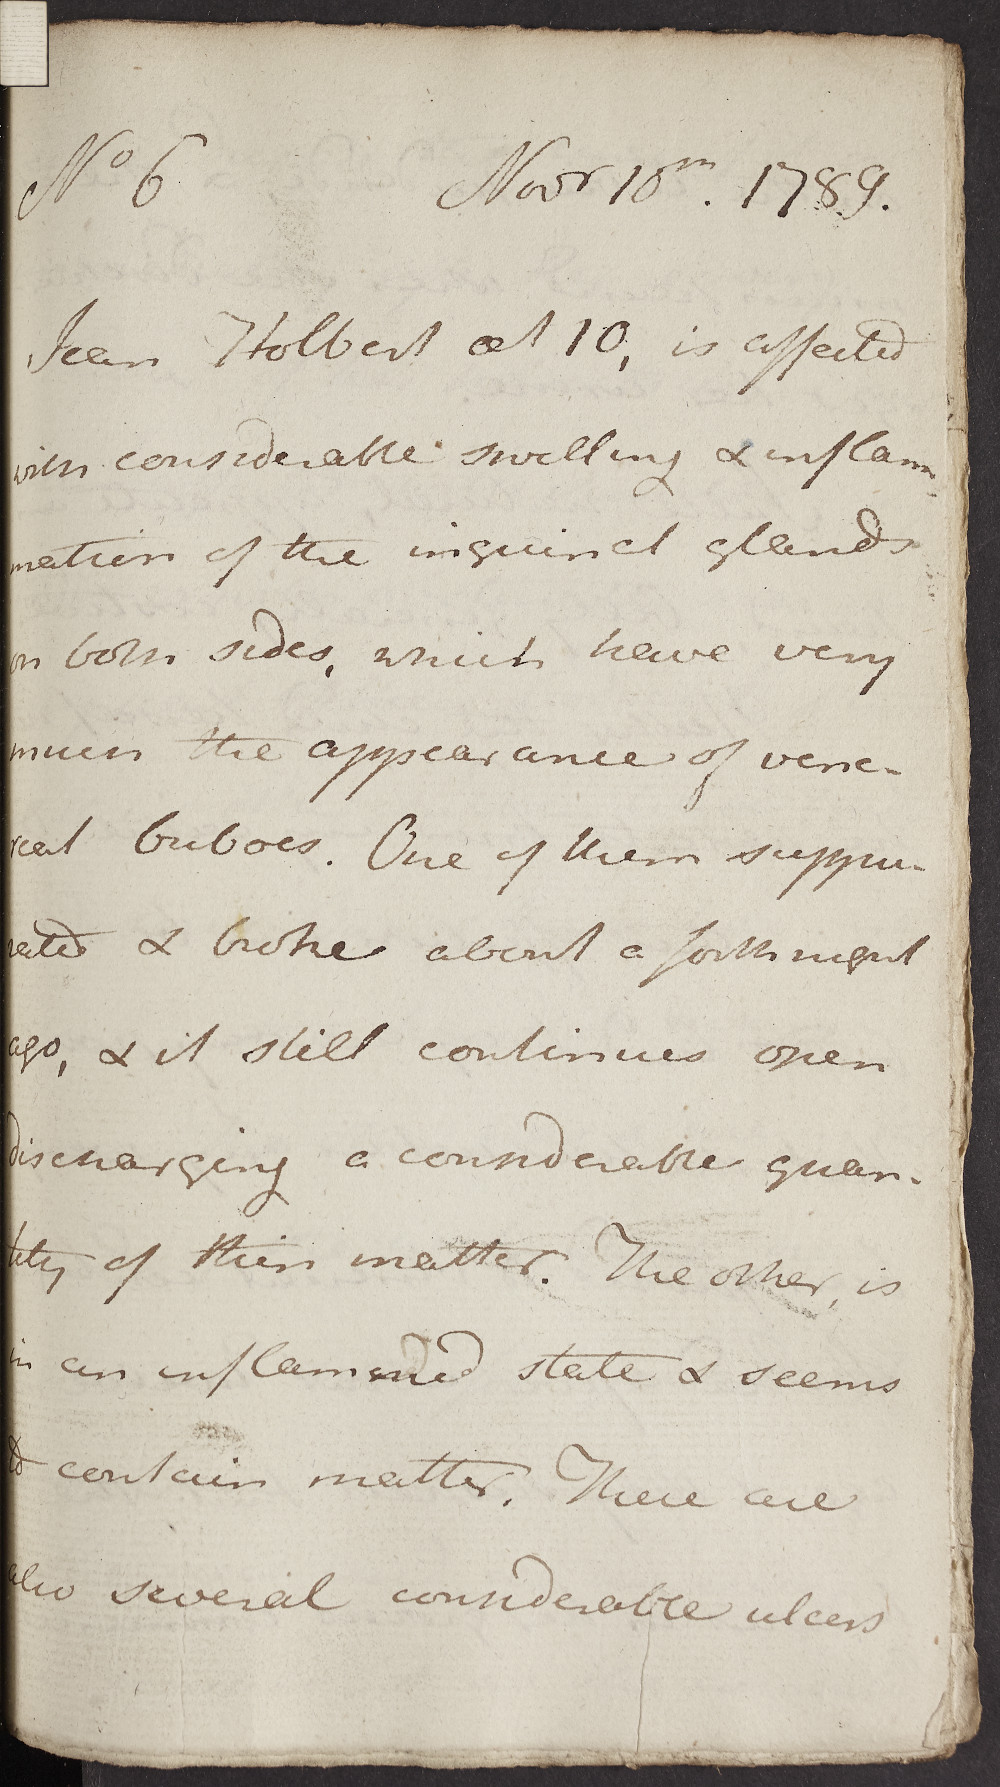 No 6 Novr 10th. 1789.
Jean Holbert æt 10, is affected
with considerable swelling & inflam-
mation of the inguinal glands
on both sides, which have very
much the appearance of vene-
real buboes. One of them suppu-
rated & broke about a forthnight
ago, & it still continues open
discharging a considerable quan-
tity of thin matter. The other, is
in an inflammed state & seems
to contain matter. There are
also several considerable ulcers